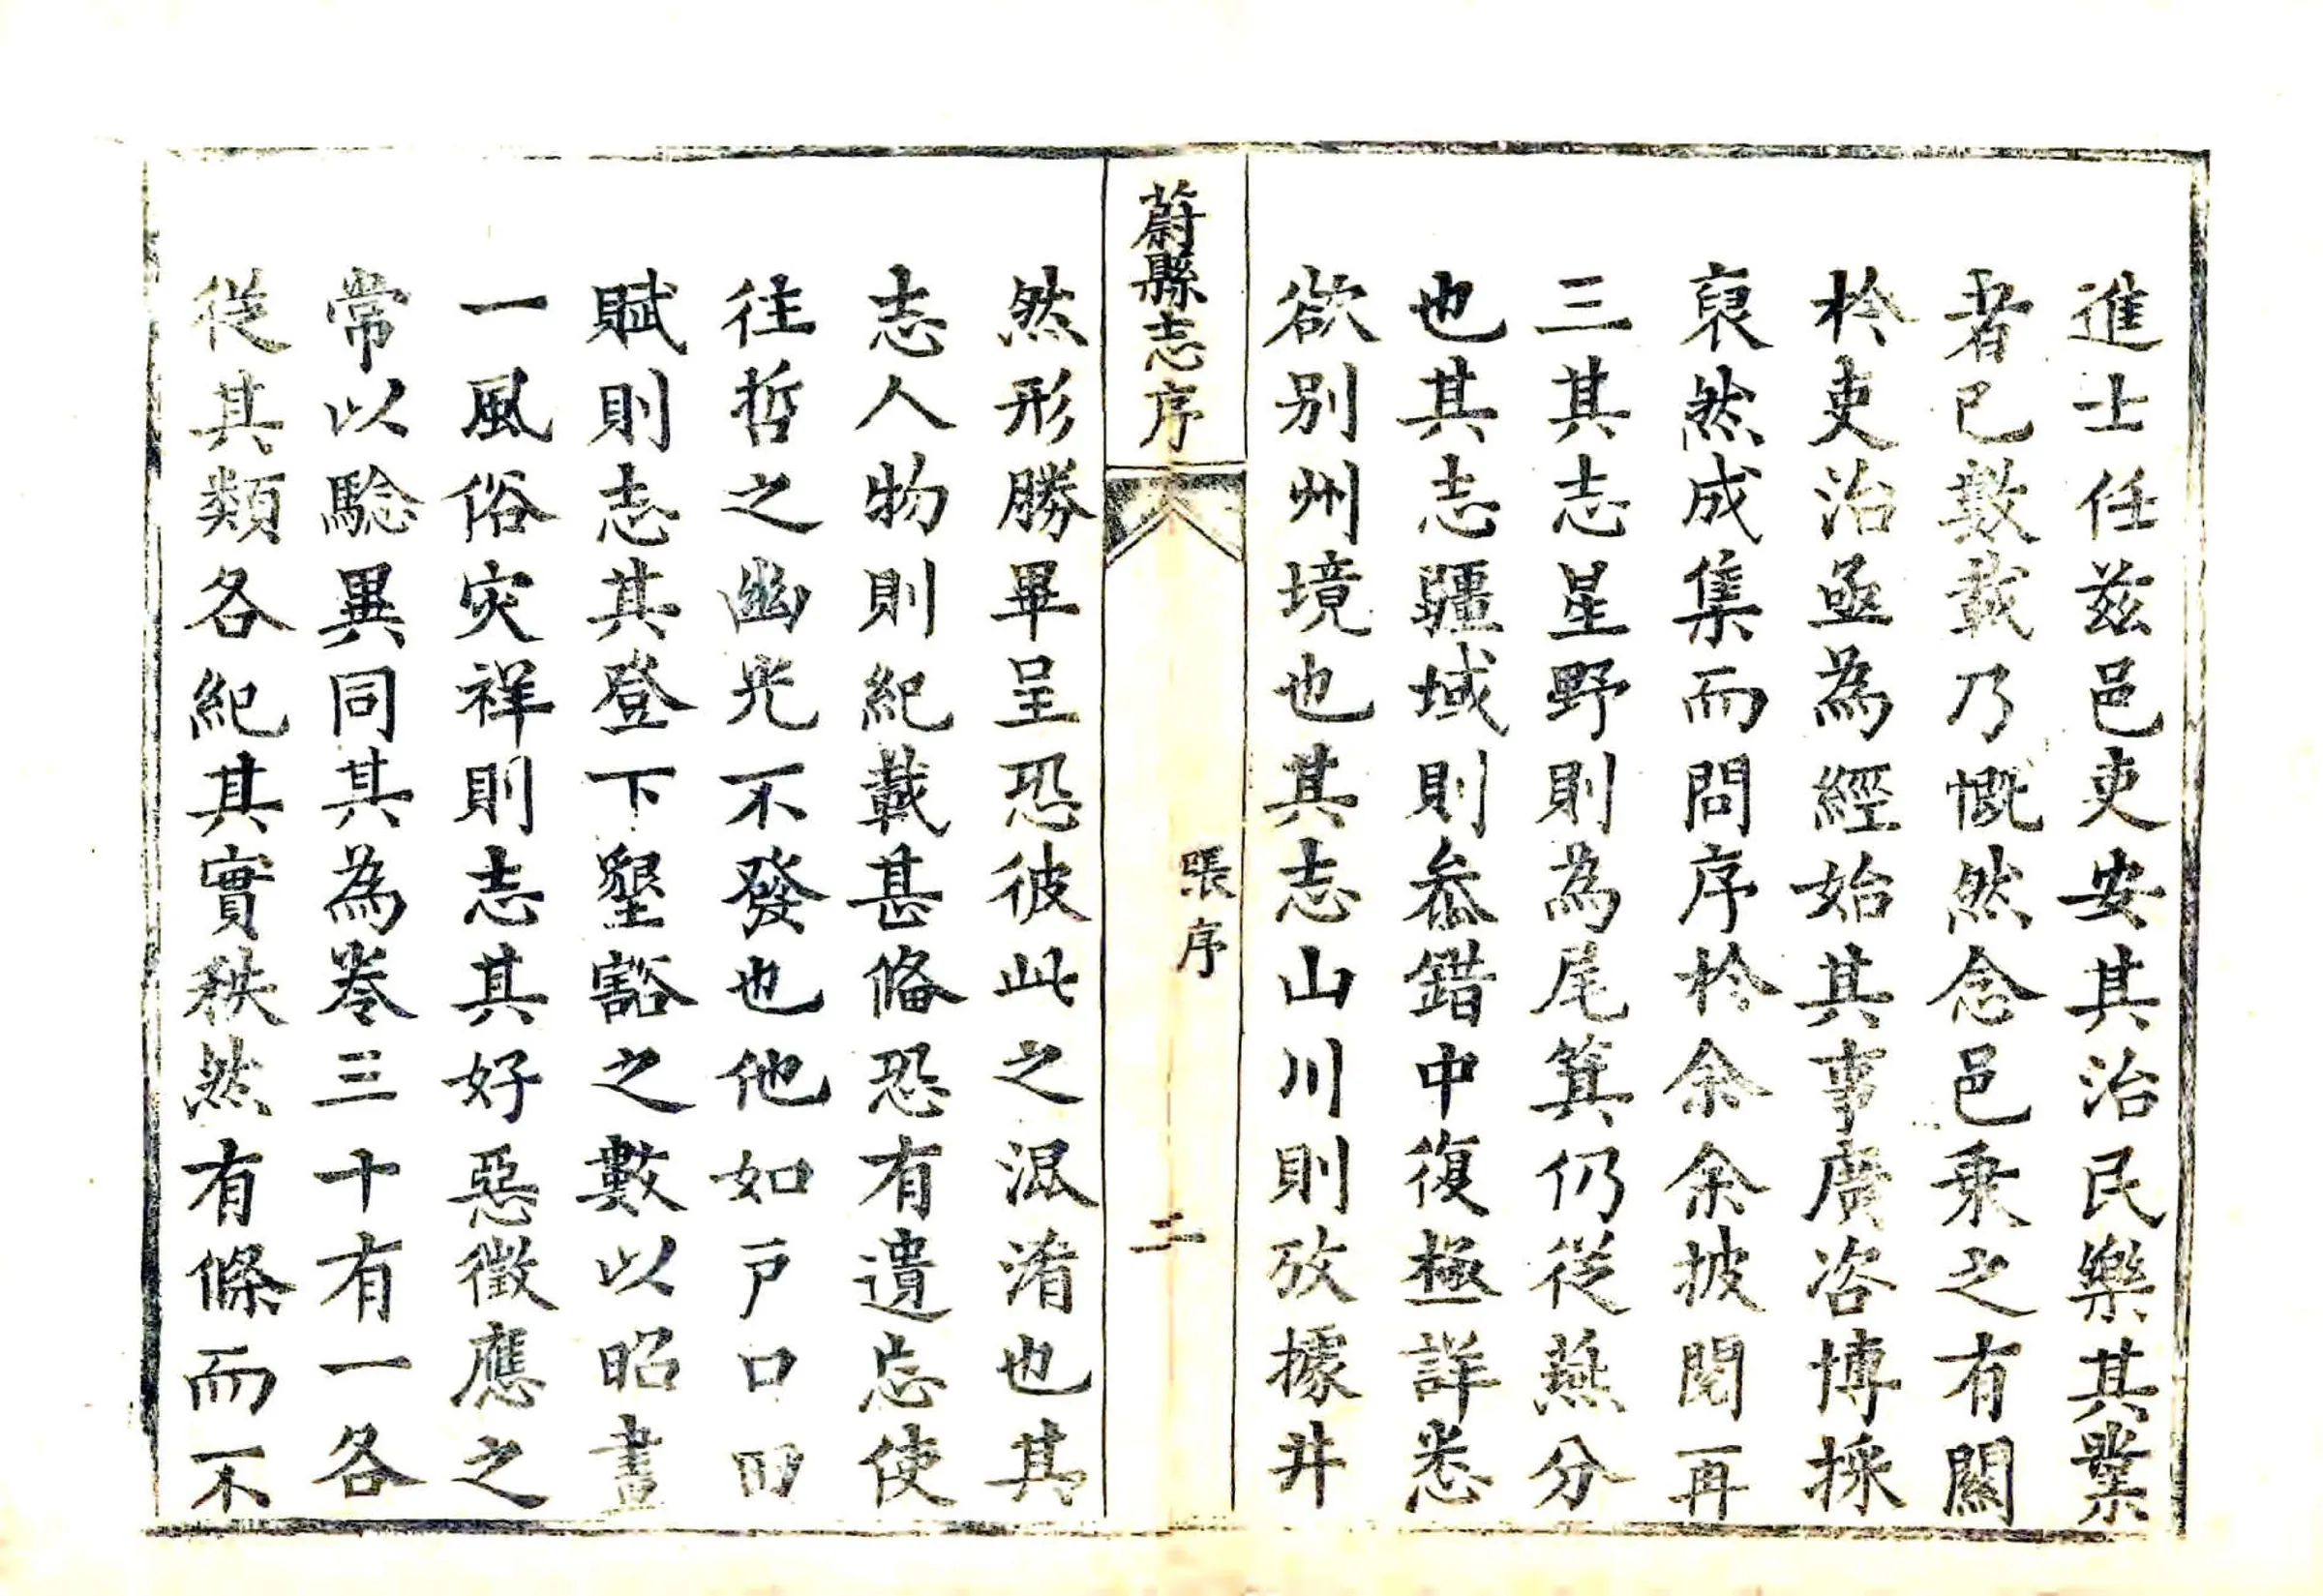 進士任茲邑吏安其治民樂其業
者已數載乃慨然念邑乘之有闕
於吏治亟為經始其事廣咨博採
裒然成集而問序於余余披閱再
三其志星野則為尾箕仍從燕分
也其志疆域則叅錯中復極詳悉
欲別州境也其志山川則攷據井
蔚縣志序
張序
二
然形勝畢呈恐彼此之混淆也其
志人物則紀載甚偹恐有遺忘使
往哲之幽光不發也他如戶口田
賦則志其登下墾豁之數以昭畫
一風俗灾祥則志其好惡徵應之
常以騐異同其為卷三十有一各
從其類各紀其實秩然有條而不